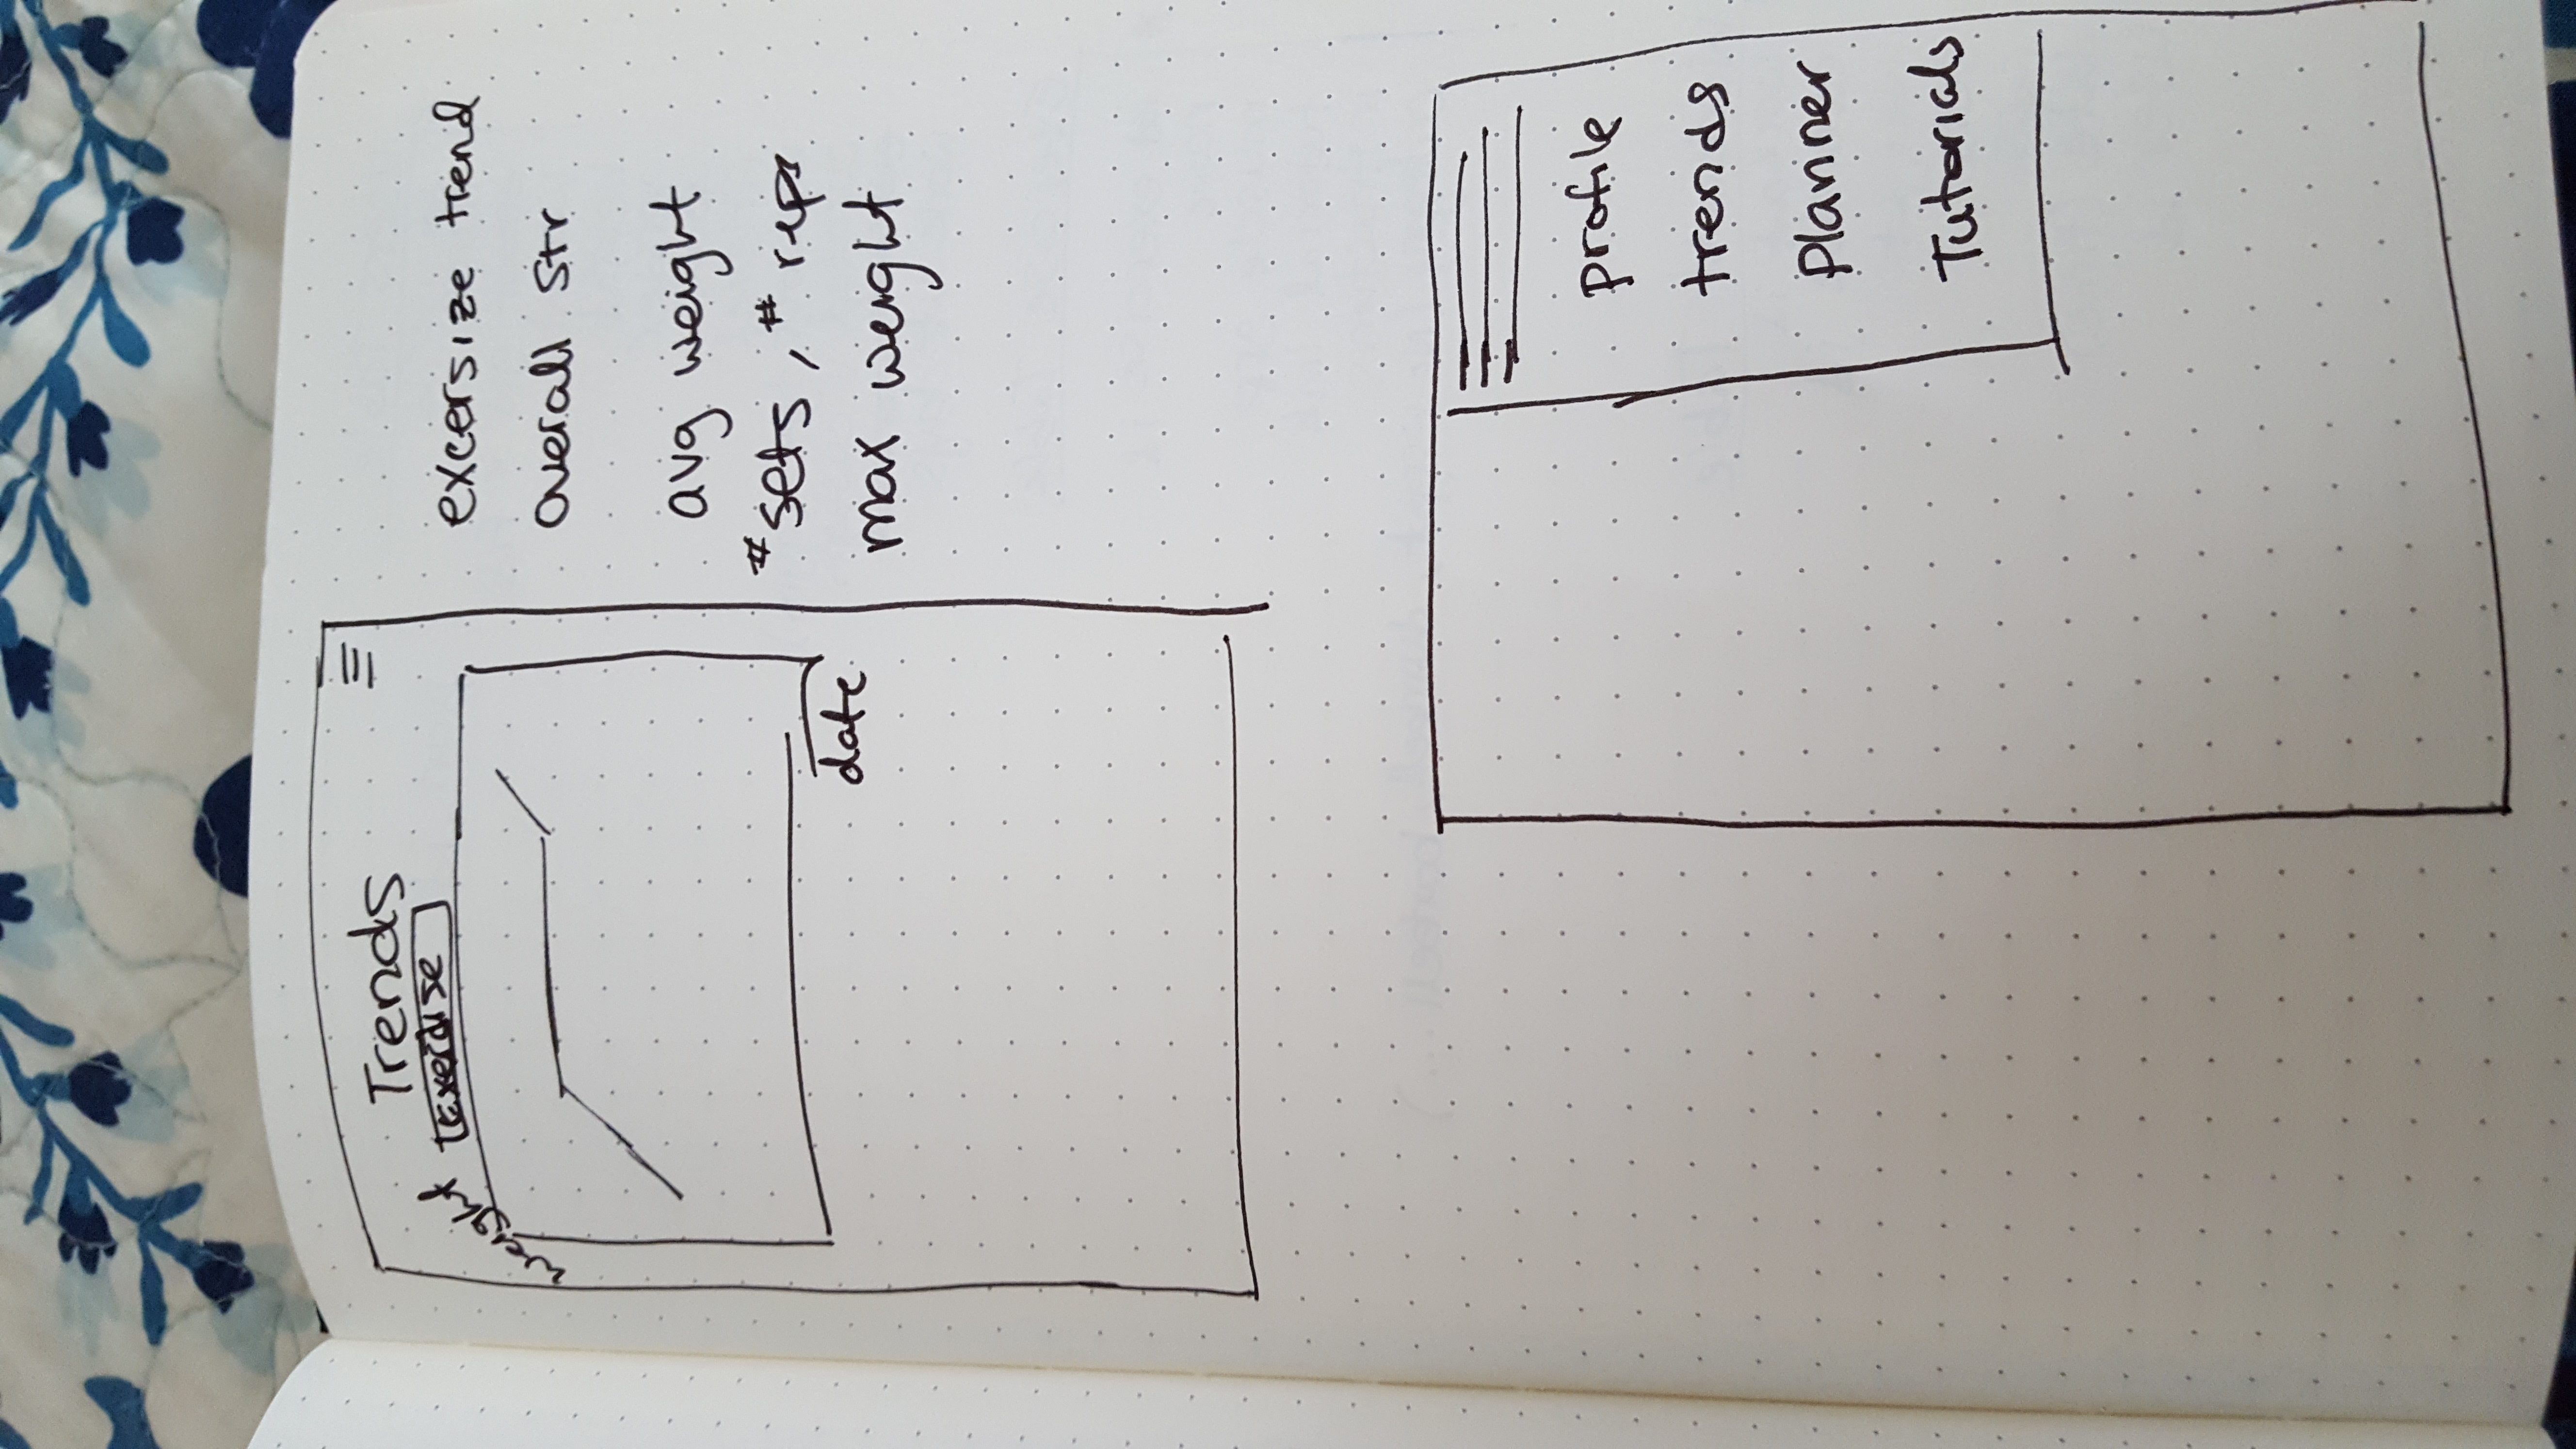 Trends
Exercise
weight
date
excersize trend
overall str
avg weight
# sets, # reps
max weight
profile
trends
Planner
Tutorials